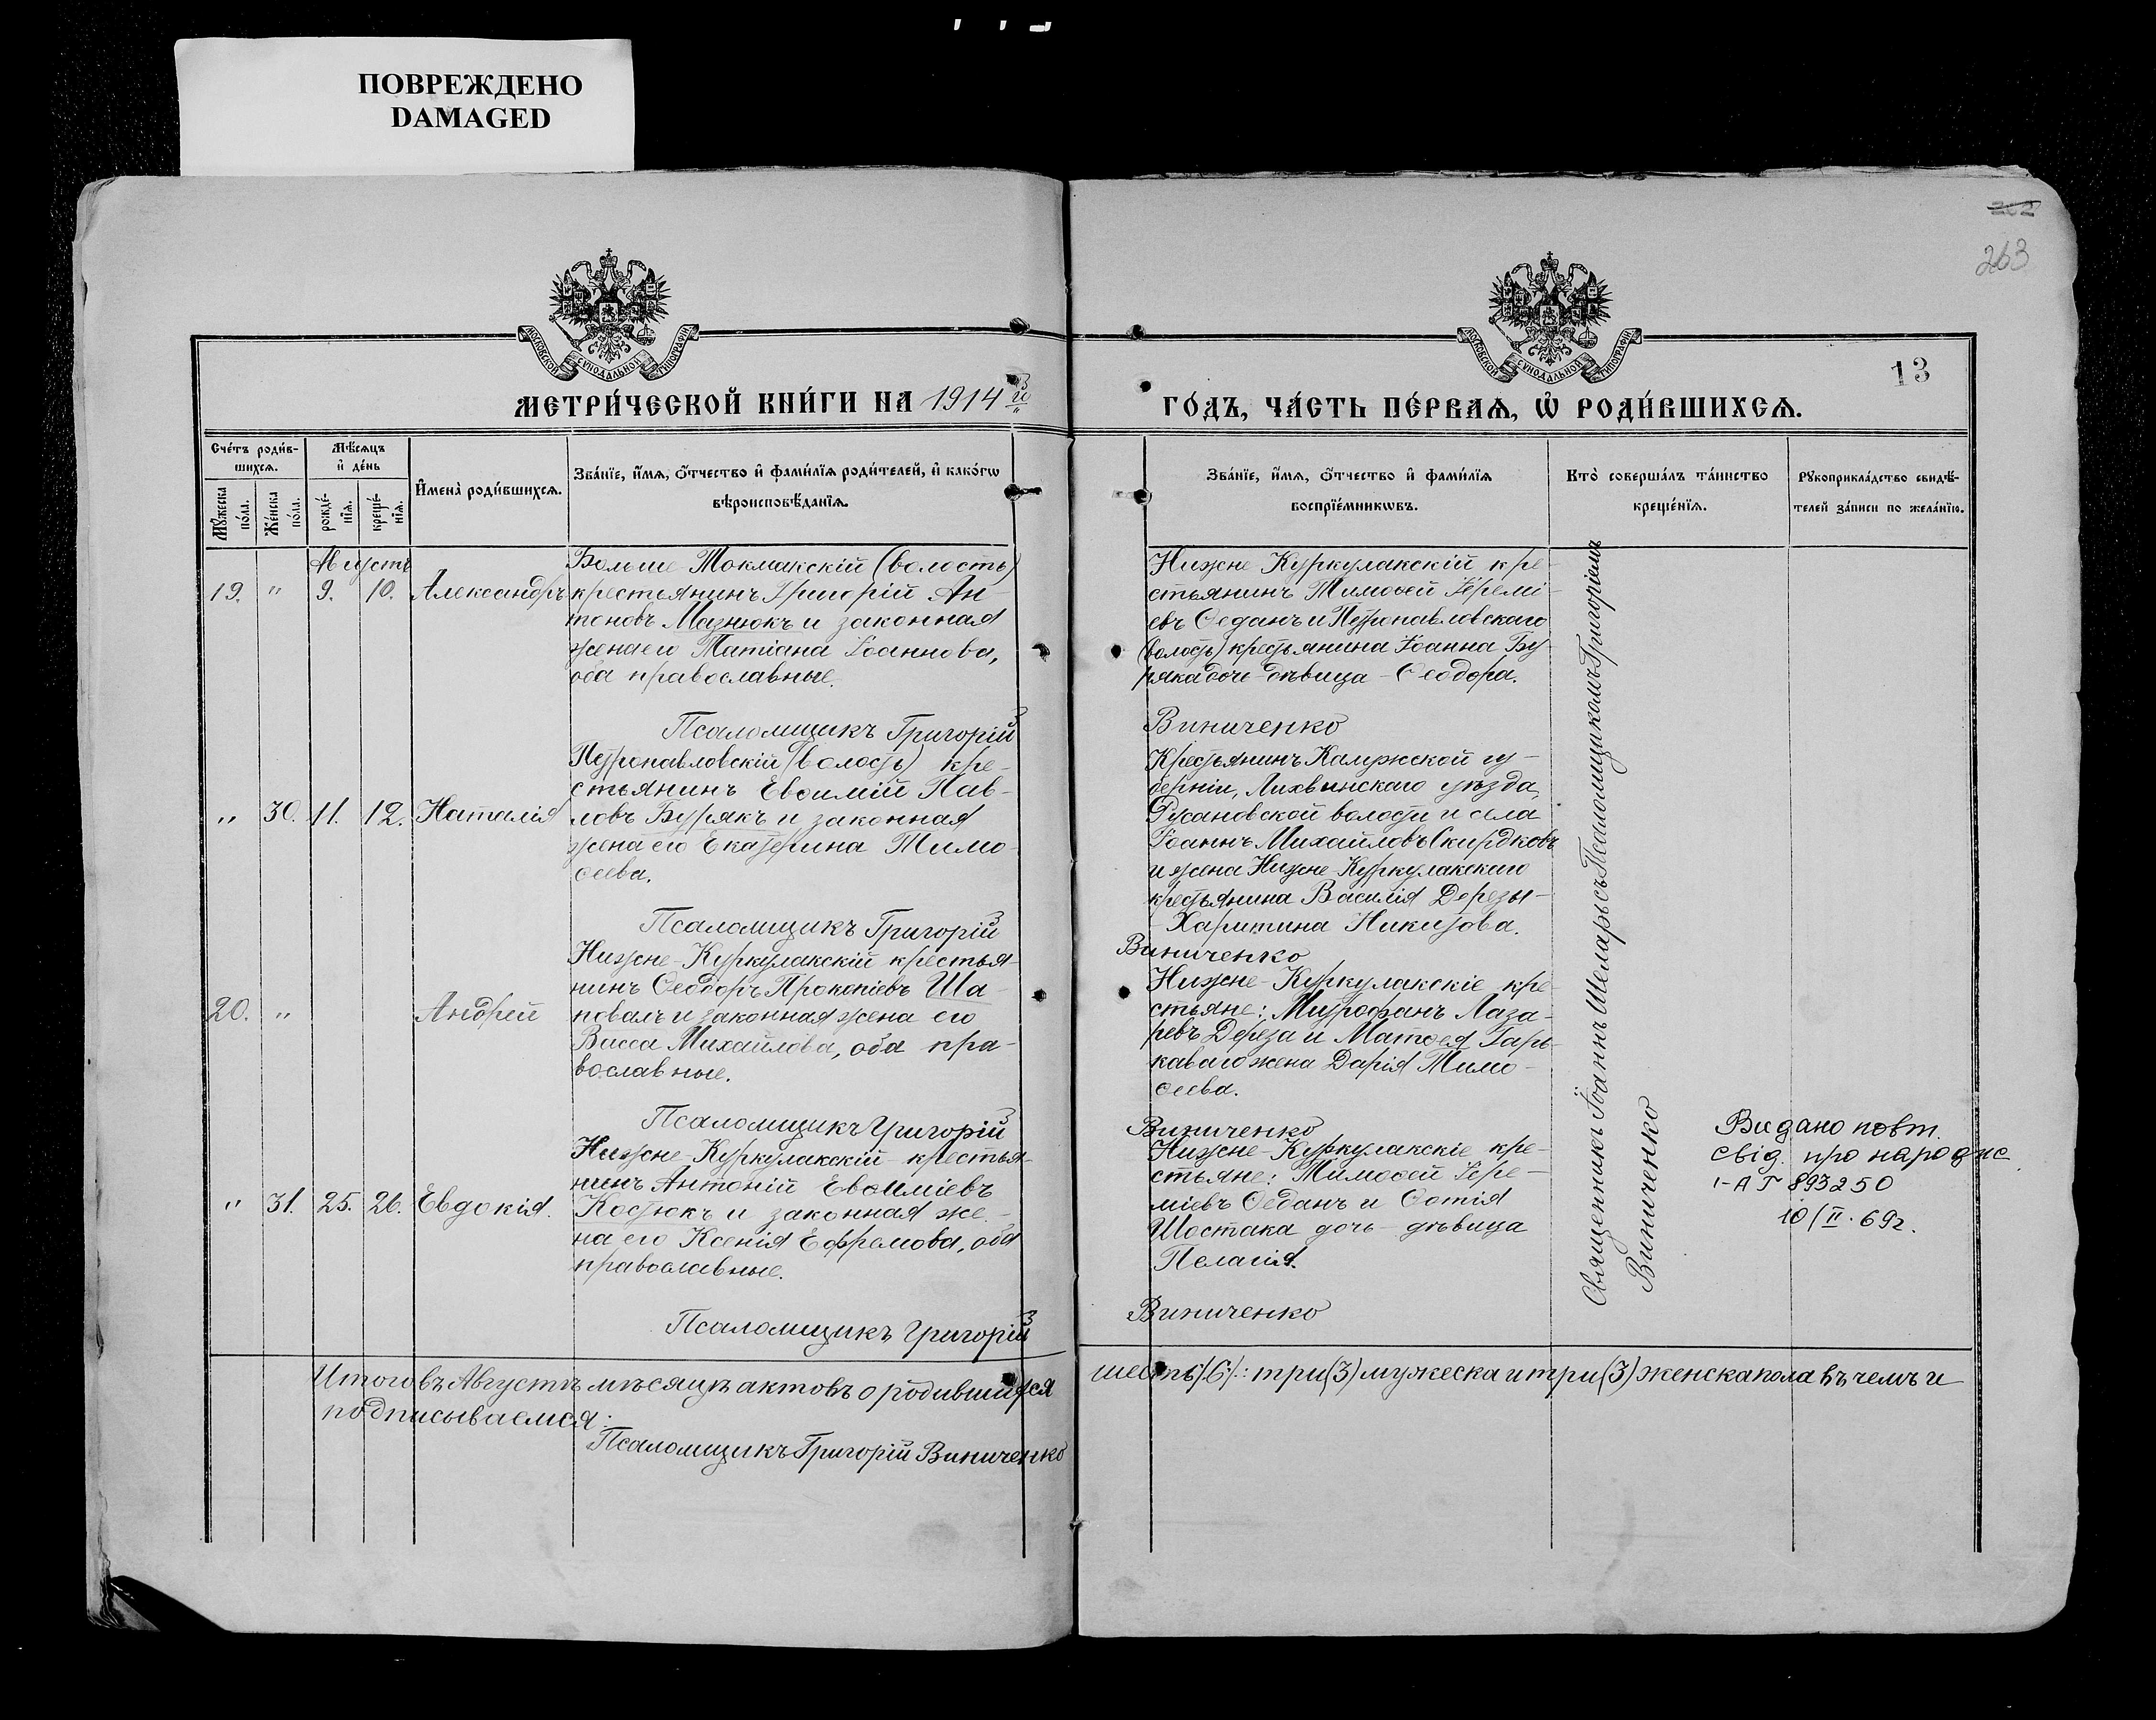 ПОВРЕЖДЕНО
DAMAGED
262
263
МОСКОВСКОЙ СѴНОДАЛЬНОЙ ТИПОГРАФІИ.
МОСКОВСКОЙ СѴНОДАЛЬНОЙ ТИПОГРАФІИ.
13
МЕТРИ́ЧЕСКОЙ КНИ́ГИ НА 1914 го
ГО́ДЪ, ЧА́СТЬ ПЕ́РВАѦ, Ѽ РОДИ́ВШИХСѦ.
Сче́тъ роди́в-
шихсѧ.
Мꙋ́жеска
по́ла.
Же́нска
по́ла.
Мѣ́сѧцъ
и҆ де́нь
рожде́-
нїѧ.
креще́-
нїѧ.
И҆мена̀ роди́вшихсѧ.
Зва́нїе, и҆́мѧ, ѻ҆́тчество и҆ фами́лїѧ роди́телей, и҆ како́гѡ
вѣроисповѣ́данїѧ.
Зва́нїе, и҆́мѧ, ѻ҆́тчество и҆ фами́лїѧ
воспрїе́мникѡвъ.
Кто̀ соверша́лъ та́инство
креще́нїѧ.
Рꙋкоприкла́дство свидѣ́-
телей за́писи по жела́нїю.
Августъ
19. " 9. 10. Александръ
Больше Токмакскій (волость)
крестьянинъ Григорій Ан-
тоновъ Мазнюкъ и законная
жена его Татіана Іоаннова,
оба православные.
Нижне Куркулакскій кре-
стьянинъ Тимоѳей Іеремі-
евъ Ѳеданъ и Петропавловскаго
(волость) крестьянина Іоанна Бу-
ряка дочь-дѣвица-Ѳеодора.
Псаломщикъ Григорій
Виниченко
" 30. 11. 12. Наталія
Петропавловскій (волость) кре-
стьянинъ Евѳимій Пав-
ловъ Бурякъ и законная
жена его Екатерина Тимо-
ѳеева.
Крестьянинъ Калужской гу-
берніи, Лихвинскаго уѣзда,
Русановской волости и села
Іоаннъ Михайловъ Скирдковъ
и жена Нижне Куркулакскаго
крестьянина Василія Дерезы-
Харитина Никитова.
Псаломщикъ Григорій
Виниченко
20. " Андрей
Нижне-Куркулакскій крестья-
нинъ Ѳеодоръ Прокопіевъ Ша-
повалъ и законная жена его
Васса Михайлова, оба пра-
вославные.
Нижне-Куркулакскіе кре-
стьяне: Митрофанъ Лаза-
ревъ Дереза и Матѳея Гарь-
каваго жена Дарія Тимо-
ѳеева.
Псаломщикъ Григорій
Виниченко
" 31. 25. 26. Евдокія.
Нижне-Куркулакскій-крестья-
нинъ Антоній Евѳиміевъ
Костюкъ и законная же-
на его Ксенія Ефремова, оба
православные.
Нижне-Куркулакскіе кре-
стьяне: Тимоѳей Іере-
міевъ Ѳеданъ и Ѳотія
Шостака дочь-дѣвица
Пелагія.
Псаломщикъ Григорій
Виниченко
Священникъ Іоаннъ Шеларь съ Псаломщикомъ Григоріемъ
Виниченко
Видано повт.
свід. про народж
1-АГ 893250
10/II. 69г.
Итого въ Августѣ мѣсяцѣ актовъ о родившихся
шесть/6/: три (3) мужеска и три (3) женска пола въ чемъ и
подписываемся:
Псаломщикъ Григорій Виниченко